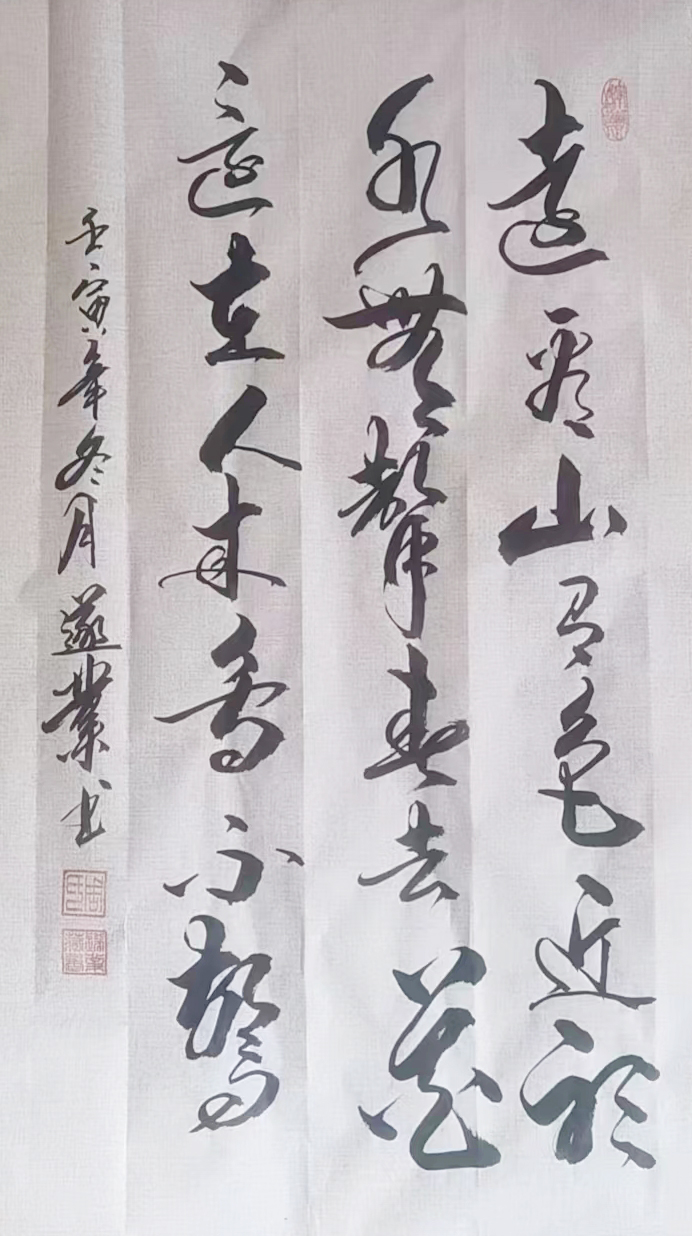 遠看山有色近聽
水無聲春去花
還在人來鳥不驚
壬寅年冬月遂業书